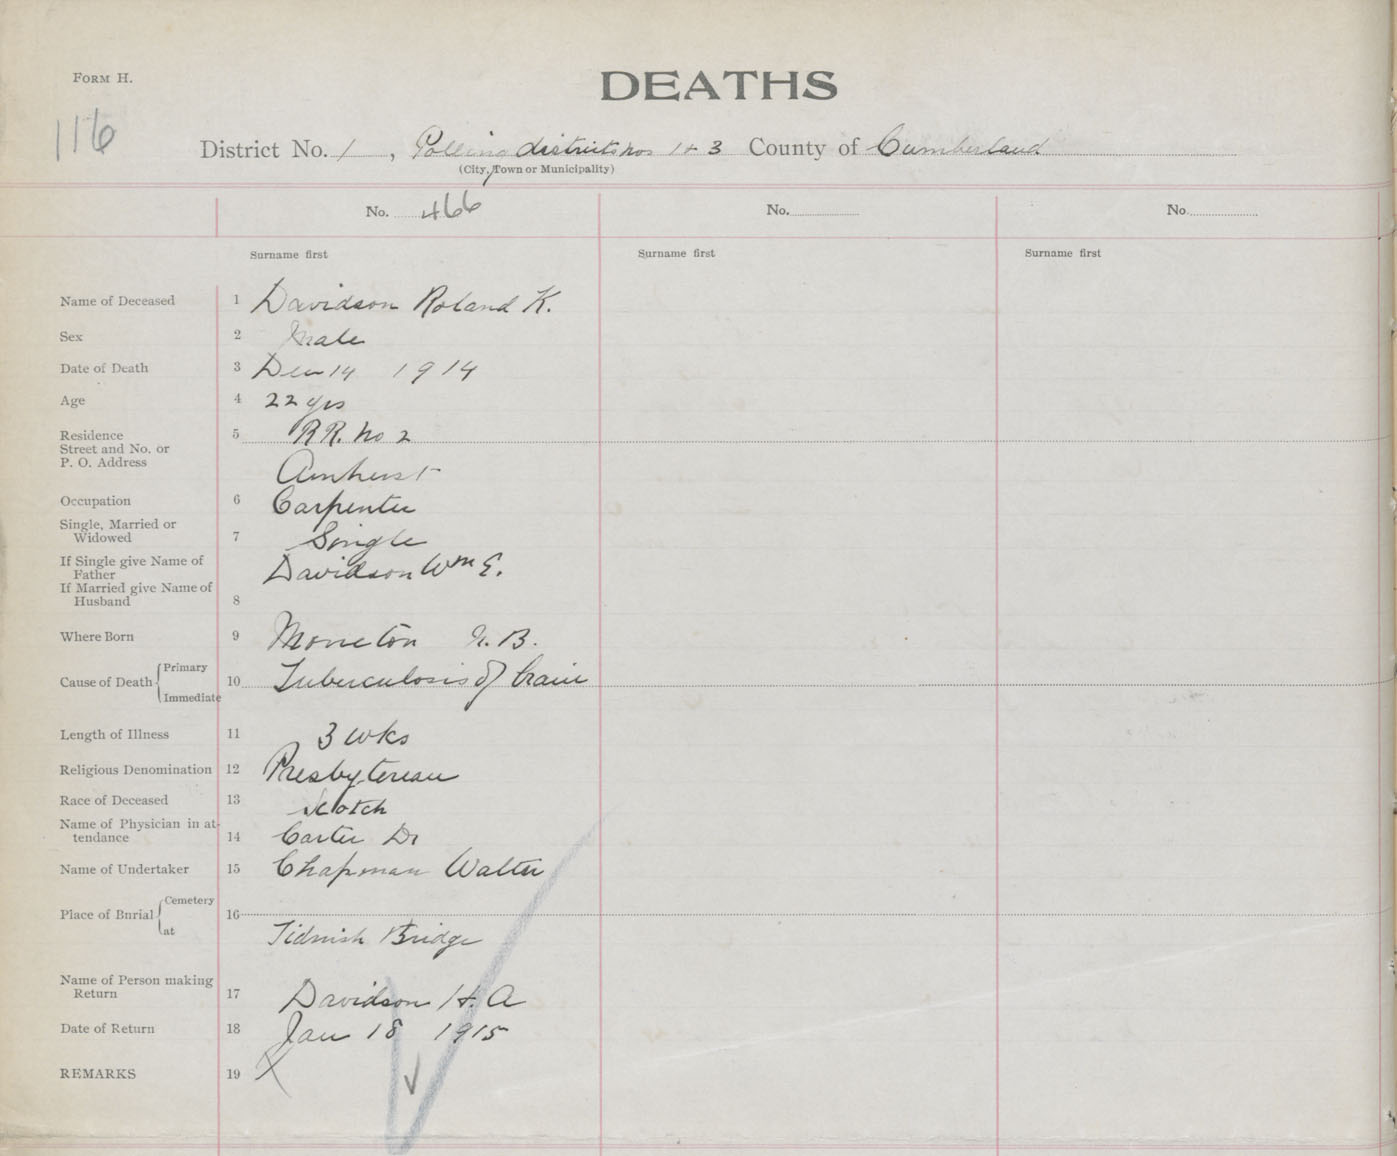 FORM H.
DEATHS
116
District No. 1, Polling districts nos 1 + 3 County of Cumberland
(City, Town or Municipality)
No. 466 No. No.
Surname first Surname first Surname first
Name of Deceased 1 Davidson Roland K.
Sex 2 Male
Date of Death 3 Dec 14 1914
Age 4 22 yrs
Residence 5 RR. No 2
Street and No. or
P. O. Address Amherst
Occupation 6 Carpenter
Single, Married or
Widowed 7 Single
If Single give Name of
Father Davidson Wm E.
If Married give Name of
Husband 8
Where Born 9 Moncton N.B.
Cause of Death Primary 10 Tuberculosis of brain
Immediate
Length of Illness 11 3 wks
Religious Denomination 12 Presbyterean
Race of Deceased 13 Scotch
Name of Physician in at-
tendance 14 Carter Dr
Name of Undertaker 15 Chapman Walter
Place of Burial Cemetery 16
at Tidnish Bridge
Name of Person making
Return 17 Davidson H. A
Date of Return 18 Jan 18 1915
REMARKS 19 X